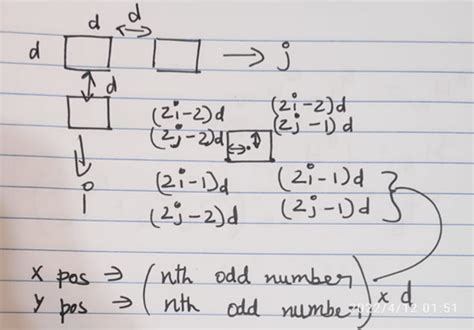 d
d → j
d
(2i-2)d (2i-2)d
(2j-2)d (2j-1)d
i
(2i-1)d (2i-1)d
(2j-2)d (2j-1)d
x pos → (nth odd number) x d
y pos → (nth odd number)
2022/4/12 01:51